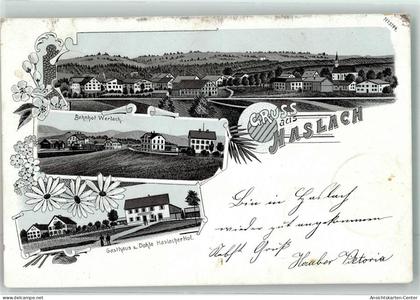 Gruss
aus
HASLACH
Bahnhof Wertach.
Gasthaus z. Dohle Haslacherhof.
Bin in Haslach
wieder gut angekommen
Nebst Gruß
Hauber Viktoria
www.AnsichtskartenCenter.de